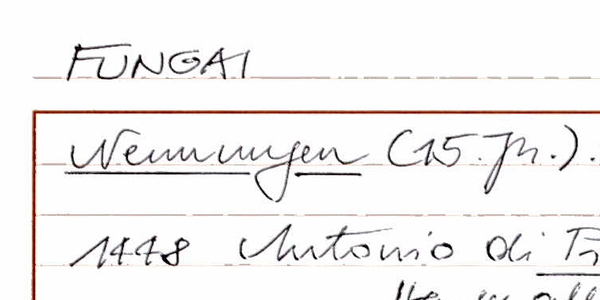 FUNGAI
Nennungen (15. Jh.).
1448 Antonio di